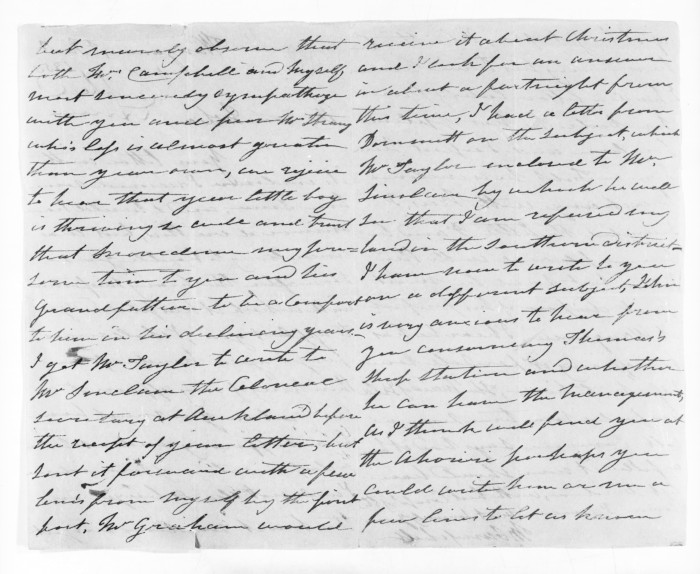 but merely observe that
both Mrs Campbell and myself
most sincerely sympathize
with you and poor Mr
whis loss is almost greater
than your own, we rejoice
to hear that your little boy
is thriving & and trust
that may
some time to you and his
Grandfather to be a comfort
to him in his declining years
I got Mr Taylor to write to
Mr Sinclair the Coloneal
secretary at Auckland before
the receipt of your letter, but
sent it forward with a few
lines from myself by the first
post. Mr Graham would
receive it about Christmas
and I look for an answer
in about a fortnight from
this time, I had a letter from
Dommett on the subject, which
Mr Taylor enclosed to Mr
Sinclair by which he will
see that I am refused my
land in the Southern district
I have now to write to you
on a different subject, John
is very anxious to hear from
you concerning Thomas's
Sheep station and whether
he can have the management,
as I think will find you at
the Ahoririe perhaps you
could write him or me a
few lines to let us know